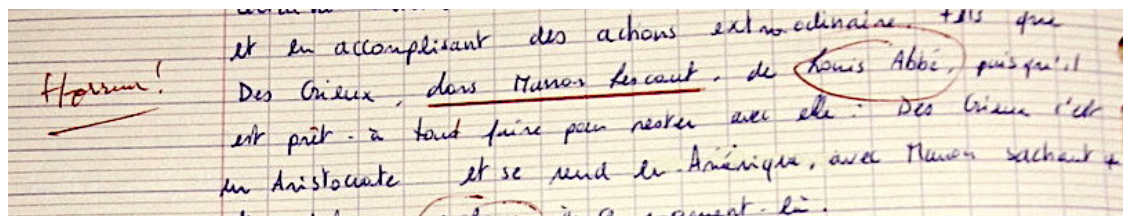 et en accomplisant des actions extraodinaire. tels que
Horreur!
Des Grieux, dans Manon Lescaut, de Louis Abbé, puisqu'il
est prêt à tout faire pour rester avec elle : Des Grieux c'est
un Aristocrate et se rend en Amérique, avec Manon sachant